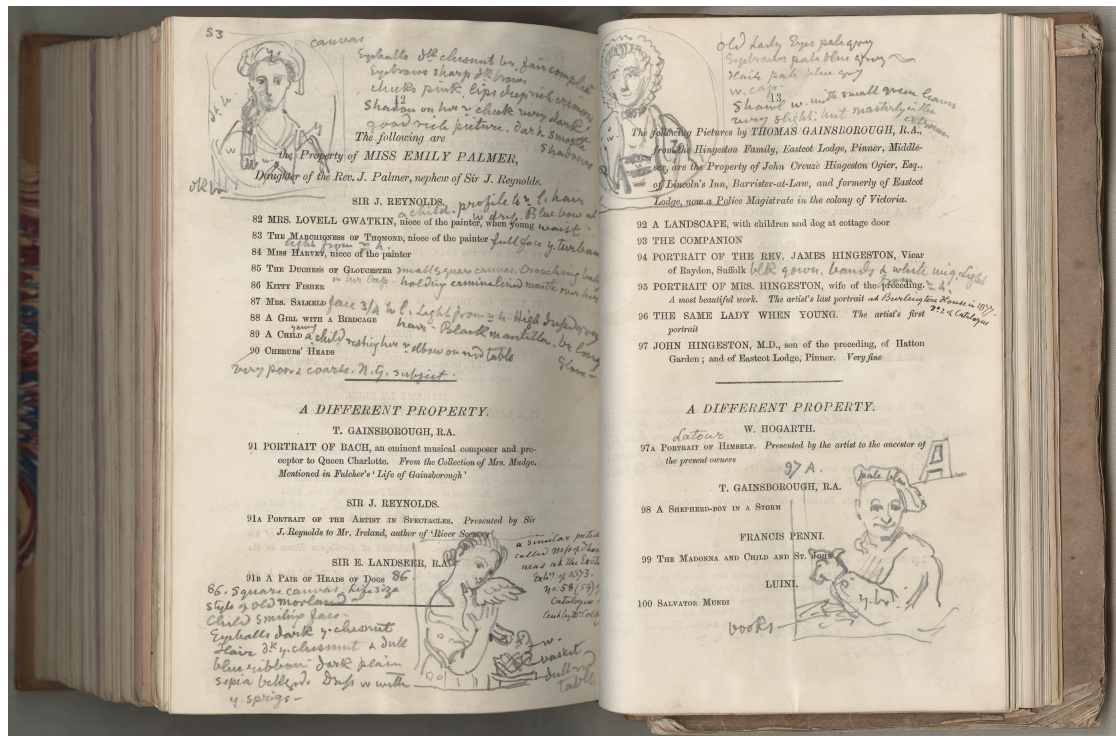 53
canvas
Eyeballs dk chesnut br. fair
Eyebrows sharp dk brown
cheeks pink. lips deep rich crimson
Shadow on her r cheek very dark
good rich picture. Dark smooth
Shadows
12
The following are
the Property of MISS EMILY PALMER,
Daughter of the Rev. J. Palmer, nephew of Sir J. Reynolds.
SIR J. REYNOLDS.
a child. profile to r. l. hair
w dress. Blue bow at
waist
82 MRS. LOVELL GWATKIN, niece of the painter, when young
83 THE MARCHIONESS OF THOMOND, niece of the painter full face y. turban
light from
84 MISS HARVEY, niece of the painter
85 THE DUCHESS OF GLOUCESTER small square canvas. Crouching
86 KITTY FISHER on her lap. holding ermine lined mantle over her
87 MRS. SALKELD face 3/4 to l. Light from r. h. High
88 A GIRL WITH A BIRDCAGE hair. Black mantilla. br long
glove
young
89 A CHILD a child resting her r elbow on red table
90 CHERUBS' HEADS
very poor & coarse. N.G. subject.
A DIFFERENT PROPERTY.
T. GAINSBOROUGH, R.A.
91 PORTRAIT OF BACH, an eminent musical composer and pre-
ceptor to Queen Charlotte. From the Collection of Mrs. Mudge.
Mentioned in Fulcher's 'Life of Gainsborough'
SIR J. REYNOLDS.
91A PORTRAIT OF THE ARTIST IN SPECTACLES. Presented by Sir
J. Reynolds to Mr. Ireland, author of 'River Scenery'
SIR E. LANDSEER, R.A.
91B A PAIR OF HEADS OF DOGS 86.
a similar picture
called
was at the
Exhn of 1873.
no. 58 (54)
Catalogue
86. Square canvas. Life size
Style of old Morland
Child smiling face
Eyeballs dark y. chesnut
Hair dk y. chesnut & dull
blue ribbon. dark plain
sepia Dress w with
y. sprigs
w.
basket
dull red
table
old Lady Eyes pale grey
Eyebrows pale blue grey
Hair pale blue grey
w. cap.
13
Shawl w. with small green leaves
very slight, but masterly
The following Pictures by THOMAS GAINSBOROUGH, R.A.,
from the Hingeston Family, Eastcot Lodge, Pinner, Middle-
sex, are the Property of John Creuzé Hingeston Ogier, Esq.,
of Lincoln's Inn, Barrister-at-Law, and formerly of Eastcot
Lodge, now a Police Magistrate in the colony of Victoria.
92 A LANDSCAPE, with children and dog at cottage door
93 THE COMPANION
94 PORTRAIT OF THE REV. JAMES HINGESTON, Vicar
of Raydon, Suffolk blk gown. bands & white wig. Light
from r. h.
95 PORTRAIT OF MRS. HINGESTON, wife of the preceding.
A most beautiful work. The artist's last portrait at Burlington House in 1877.
Catalogue
96 THE SAME LADY WHEN YOUNG. The artist's first
portrait
97 JOHN HINGESTON, M.D., son of the preceding, of Hatton
Garden; and of Eastcot Lodge, Pinner. Very fine
A DIFFERENT PROPERTY.
W. HOGARTH.
Latour
97A PORTRAIT OF HIMSELF. Presented by the artist to the ancestor of
the present owners
97 A.
T. GAINSBOROUGH, R.A.
pale blue
98 A SHEPHERD-BOY IN A STORM
FRANCIS PENNI.
99 THE MADONNA AND CHILD AND ST. JOHN
LUINI.
y. br.
100 SALVATOR MUNDI
books